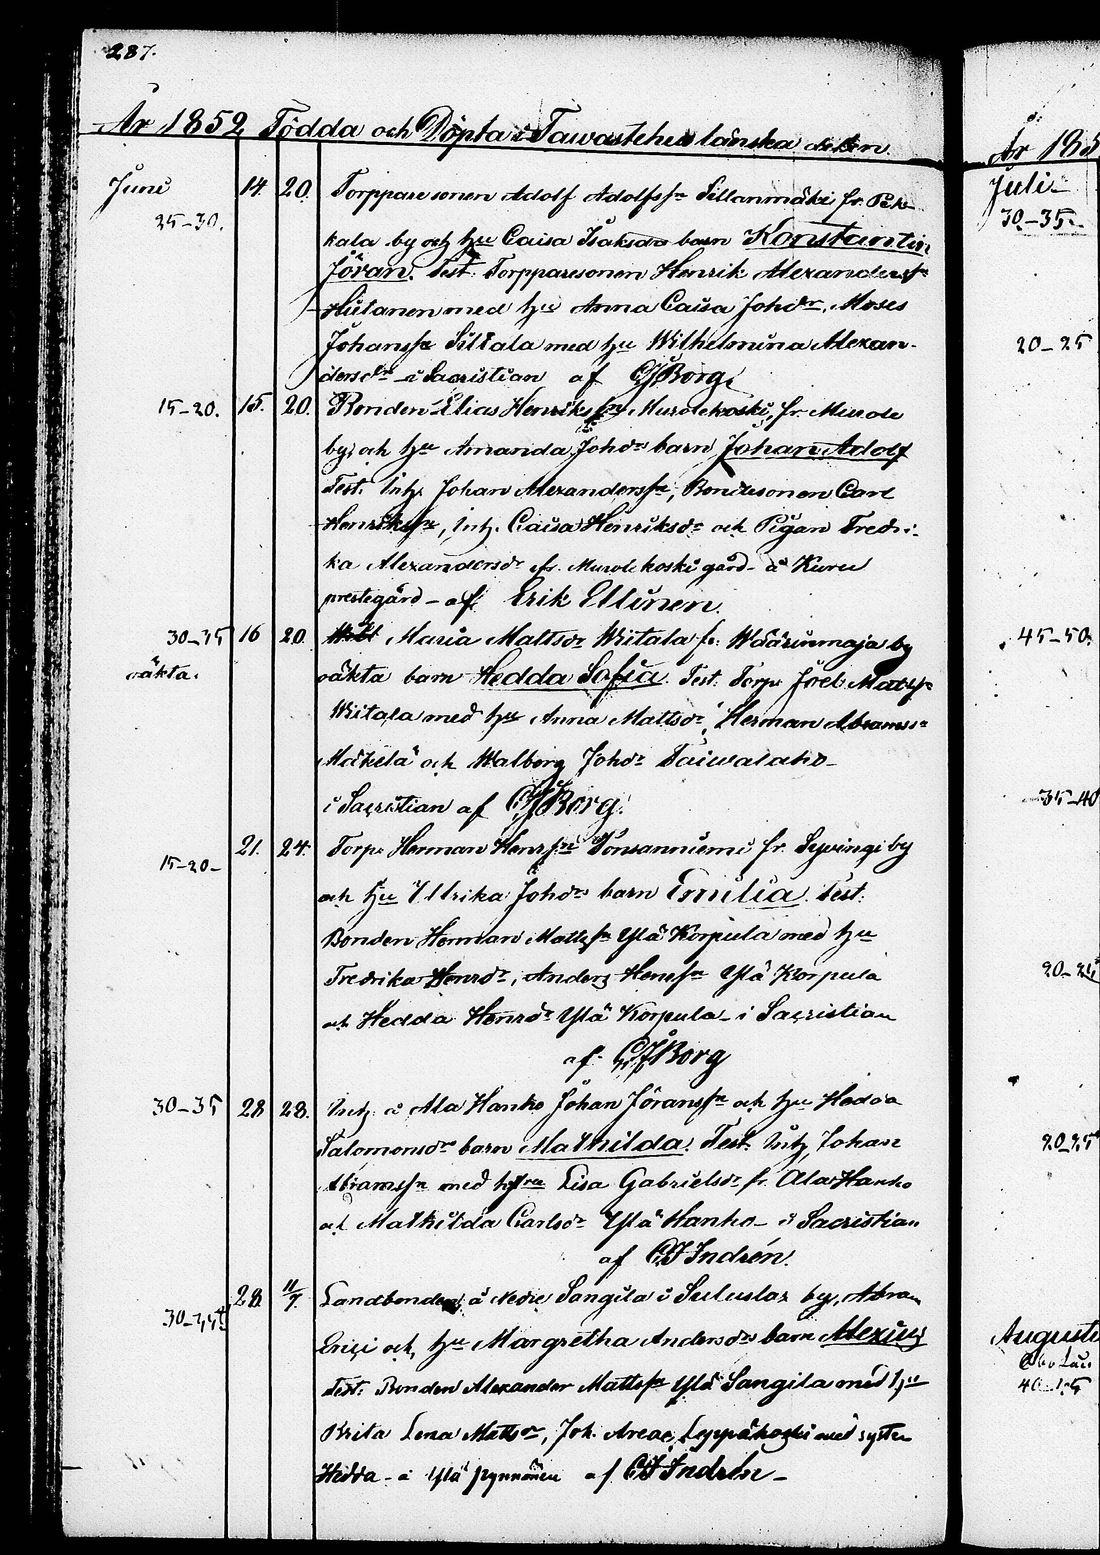 287.
År 1852 Födda och Döpta i Tawastehus länska delen.
Juni 14. 20. Torpparesonen Adolf Adolfss:n Sillanmäki fr. Pek-
25-30. kala by och h:u Caisa Isaksd:r barn Konstantin
Jöran. Test. Torpparesonen Henrik Alexanderss:n
Hutanen med h:u Anna Caisa Johd:r, Moses
Johanss:n Siltala med h:u Wilhelmina Alexan-
dersd:r - i Sacristian af CJ Borg.
15-20. 15. 20. Bonden Elias Henrikss:n Murolekoski, fr. Murole
by, och h:u Amanda Johd:r barn Johan Adolf
Test. Inh. Johan Alexanderss:n, Bondesonen Carl
Henrikss:n, Inh. Caisa Henriksd:r och Pigan Fredri-
ka Alexandersd:r fr. Murolekoski gård - å Kuru
prestegård - af Erik Ellinen.
30-35 16 20. Maria Mattsd:r Witala fr. Wäärinmaja by
oäkta. oäkta barn Hedda Sofia. Test. Torp. Joel Matss:n
Witala med h:u Anna Mattsd:r, Herman Abramss:n
Mäkelä och Walborg Johd:r Taiwalaho -
i Sacristian af CJ Borg.
15-20- 21. 24. Torp. Herman Henrss:n Ponsanniemi fr. Syvingi by
och h:u Ullrika Johd:r barn Emilia. Test.
Bonden Herman Matss:n Ylä Korpula med h:u
Fredrika Henrsd:r, Anders Henrss:n Ylä Korpula
och Hedda Henrsd:r Ylä Korpula - i Sacristian
af CJ Borg
30-35 28 28. Inh. å Ala Hanho Johan Jöranss:n och h:u Hedda
Salomonsd:r barn Mathilda. Test. Inh. Johan
Abramss:n med h:stru Lisa Gabrielsd:r fr. Ala Hanho
och Mathilda Carlsd:r Ylä Hanho - i Sacristian
af CJ Indrén.
30-35 28. 11/7. Landbonden å Nedre Sangila i Suluslax by, Abram
Erici och h:u Margretha Andersd:rs barn Alexius
Test. Bonden Alexander Mattss:n Ylä Sangila med h:u
Brita Lena Mattsd:r, Joh. Leppäkoski med syster
Hedda - å Ylä Pynnönen af CJ Indrén -
År 185
Juli
30-35.
20-25
45-50.
35-40
20-25
20-25
Augusti
40-45